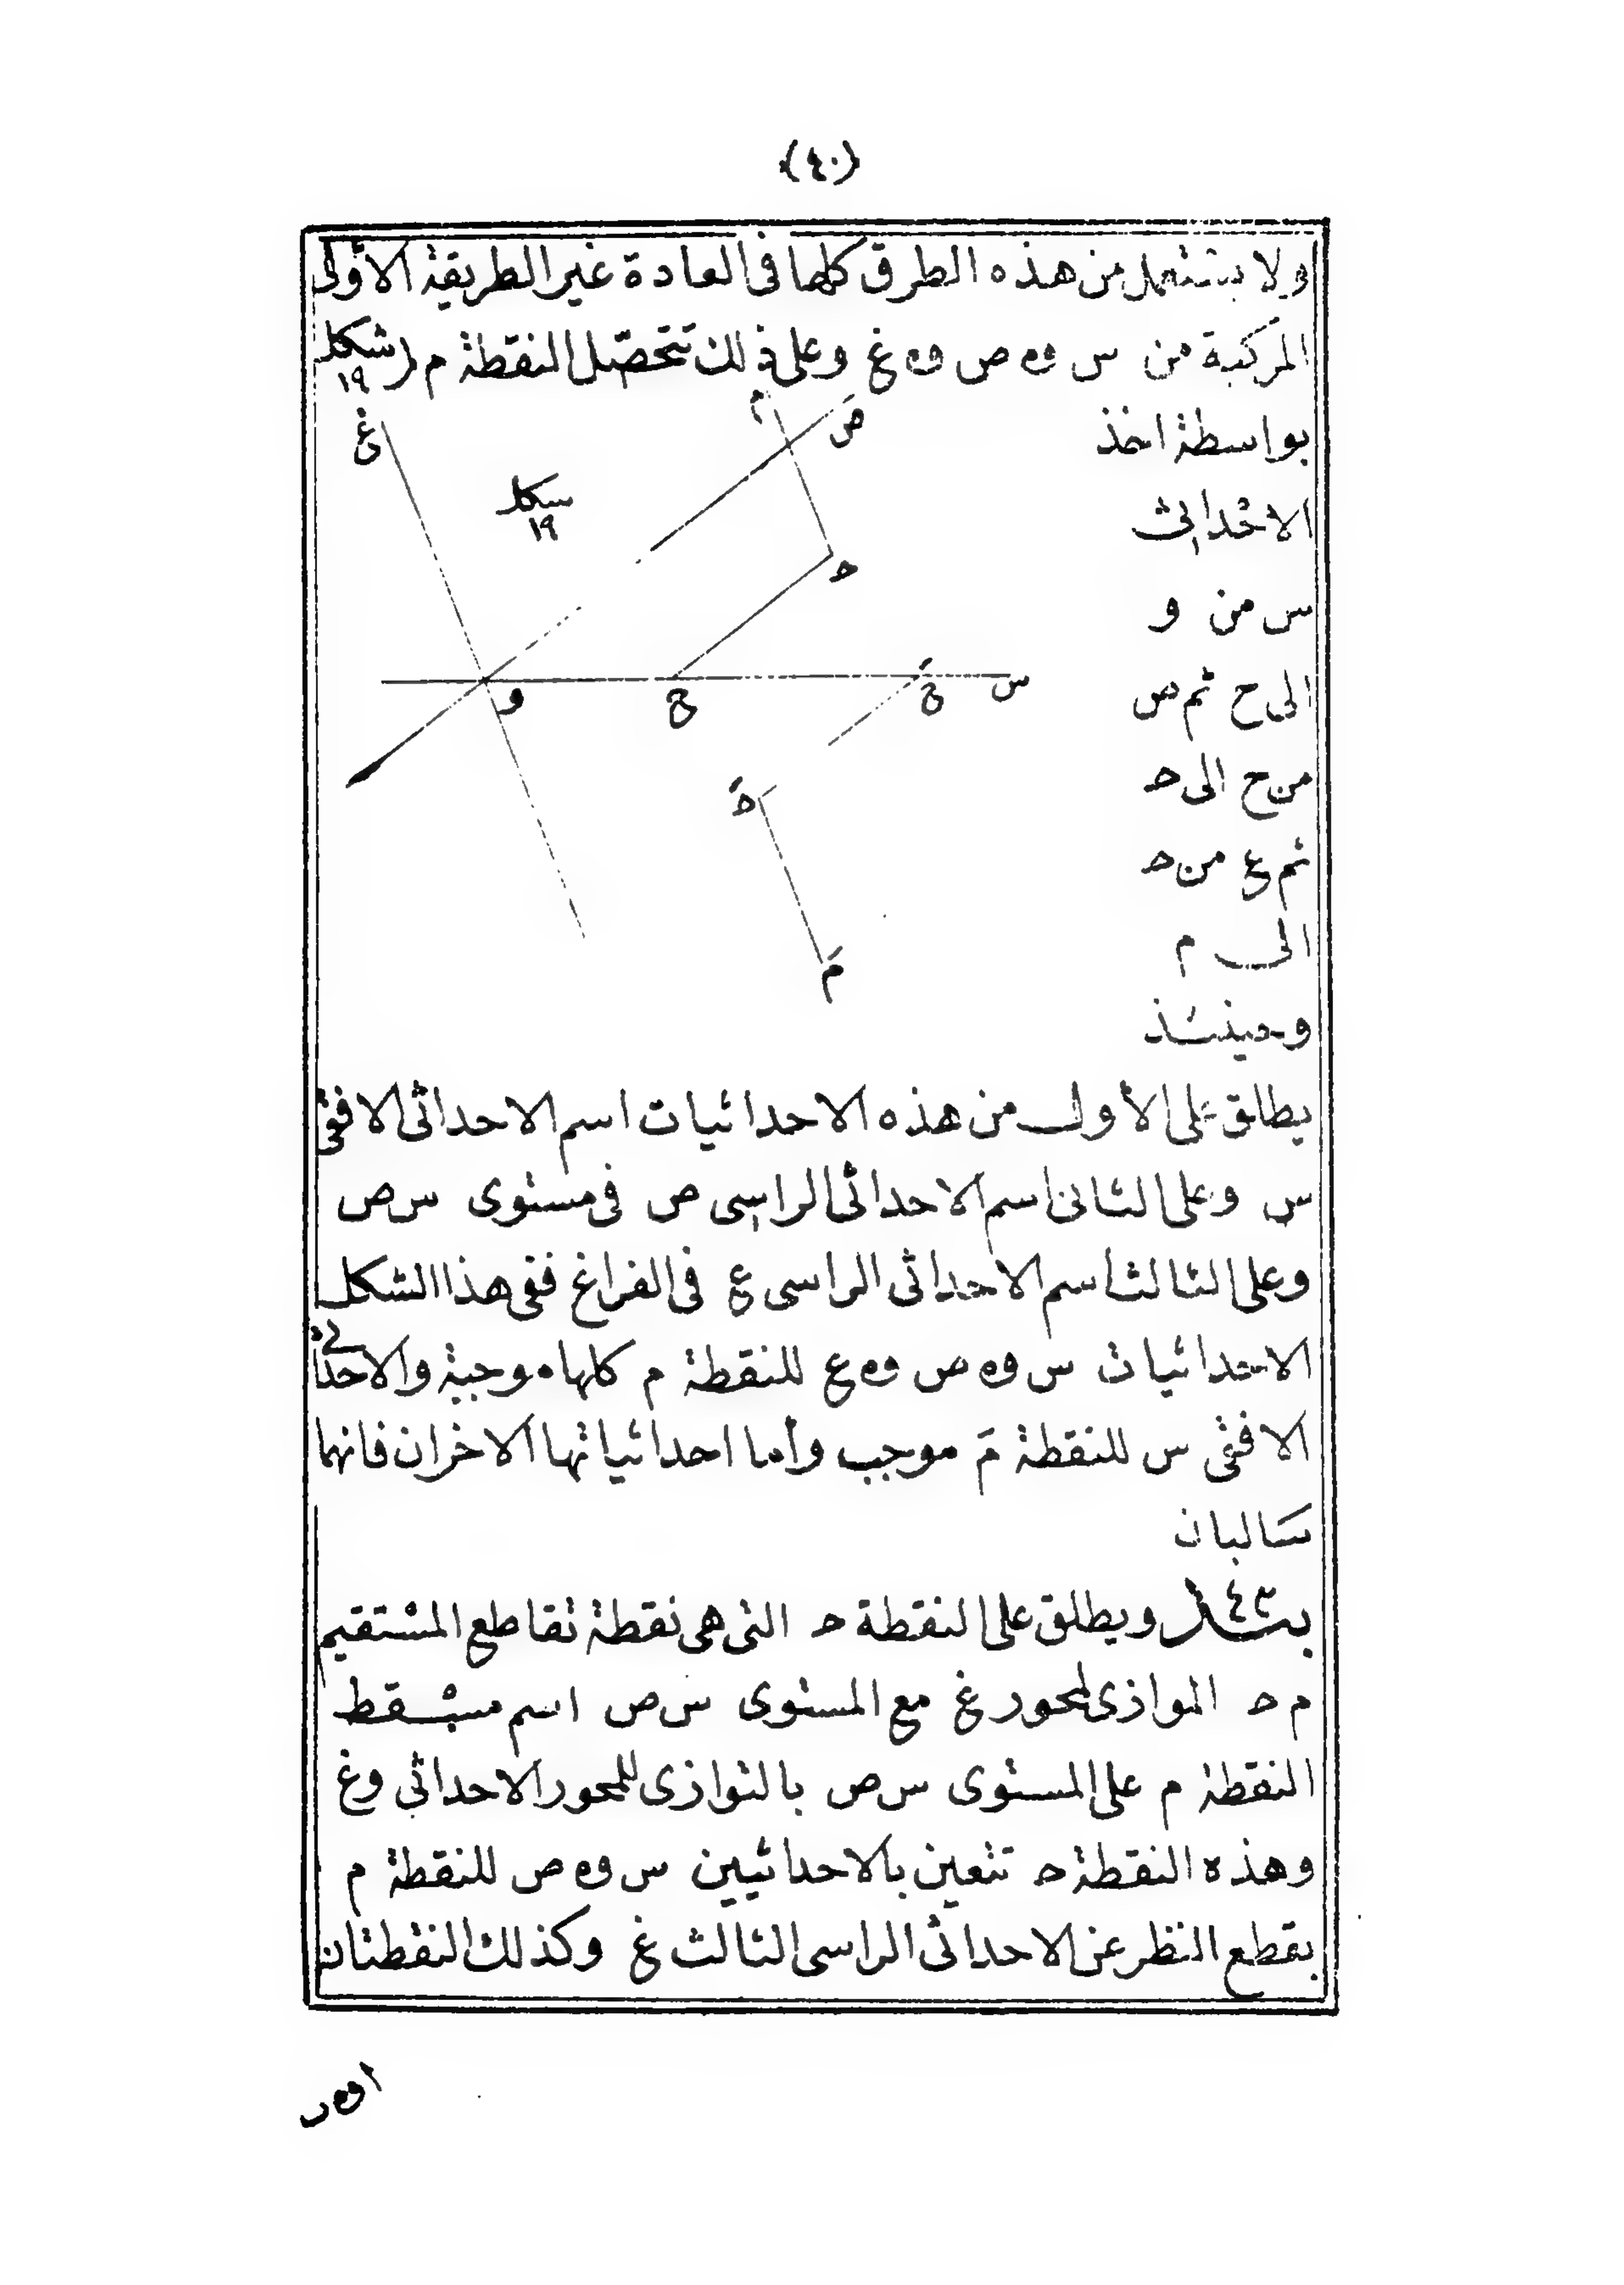 (٤٠)
ولا يستعمل من هذه الطرق كلها فى العادة غير الطريقة الاوّلى
المركبة من س و٥ ص و٥ غ وعلى ذلك تتحصّل النقطة م (شكل ١٩
بواسطة اخذ
الاحداثى
س من و
الى ح ثم ص
من ح الى حـ
ثم ع من حـ
الى م
وحينئذ
غ
شكل
١٩
م
ص
حـ
و
ح
حَ
س
حـَ
مَ
يطلق على الأول من هذه الاحداثيات اسم الاحداثى الافقى
س وعلى الثانى اسم الاحداثى الراسى ص فى مستوى س ص
وعلى الثالث اسم الاحداثى الراسى ع فى الفراغ ففى هذا الشكل
الاحداثيات س و٥ ص و٥ ع للنقطة م كلها موجبة والاحداثى
الافقى س للنقطة مَ موجب وأما احداثياتها الاخران فانهما
سالبان
بـ٤٣ـند ويطلق على النقطة حـ التى هى نقطة تقاطع المستقيم
م حـ الموازى لمحور غ مع المستوى س ص اسم مسقط
النقطة م على المستوى س ص بالتوازى للمحور الاحداثى وغ
وهذه النقطة حـ تتعين بالاحداثيين س و٥ ص للنقطة م
بقطع النظر عن الاحداثى الراسى الثالث غ وكذلك النقطتان